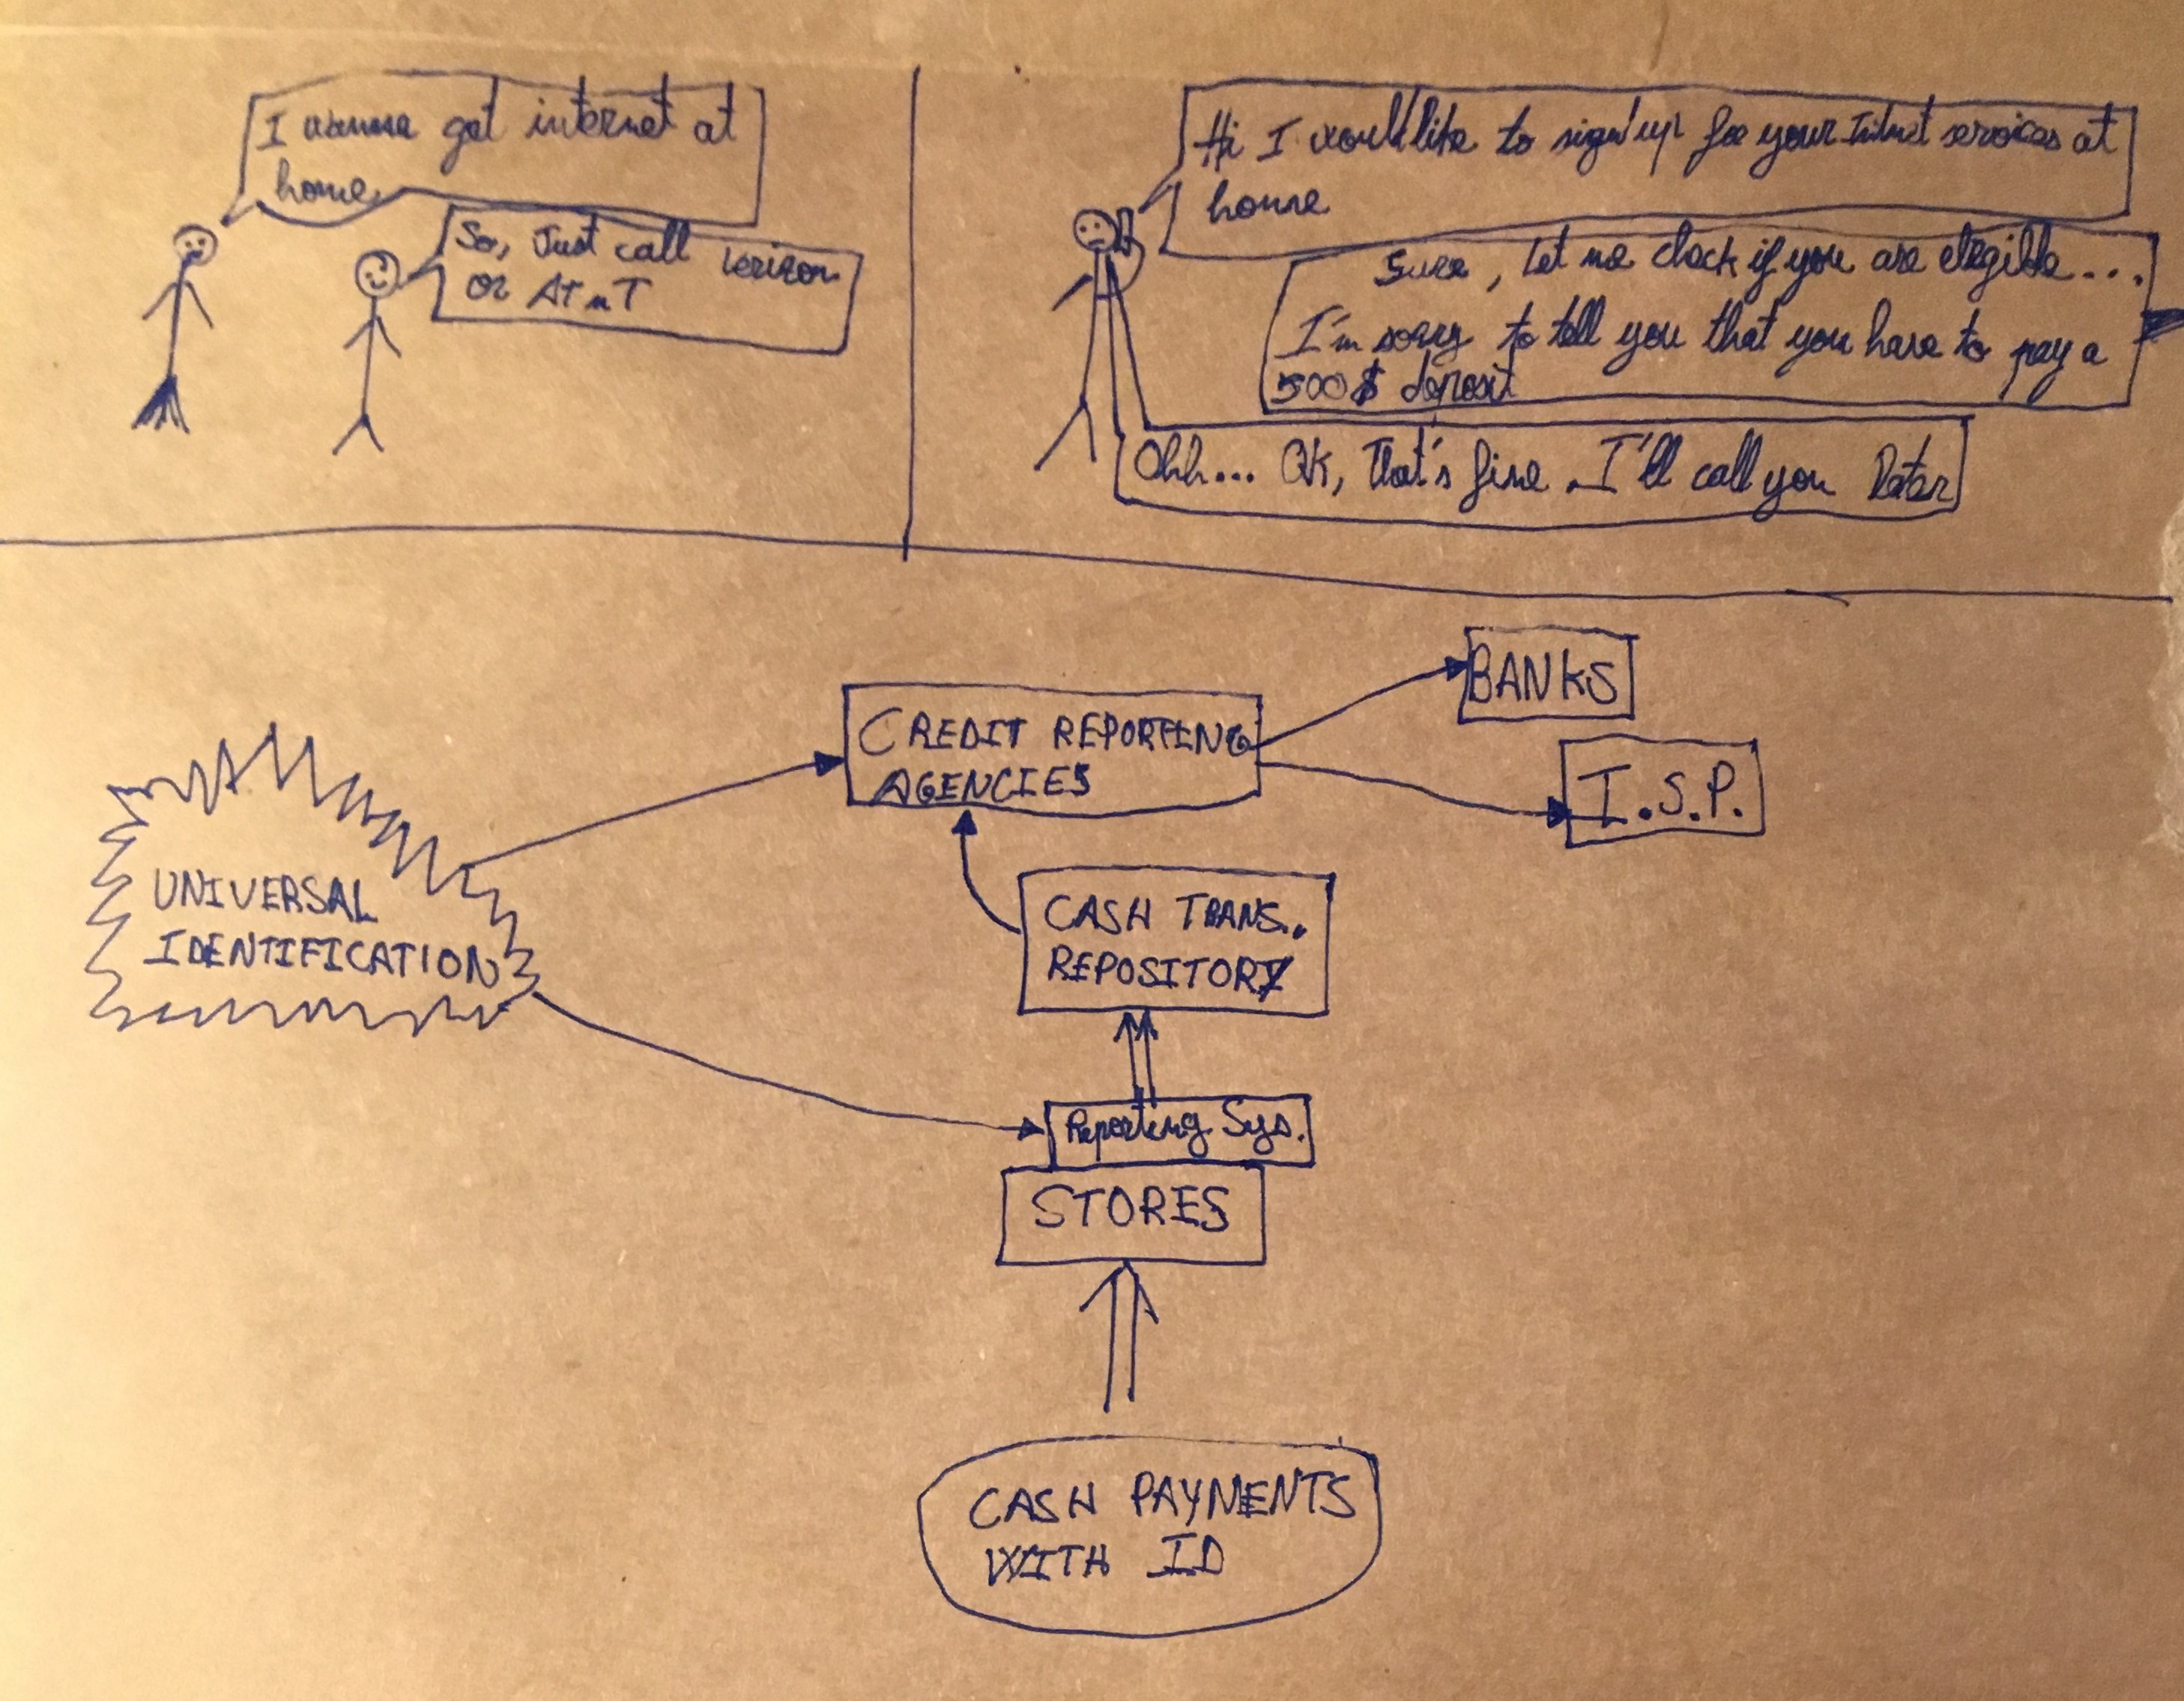 I wanna get internet at
home.
So, Just call Verizon
or AT n T
Hi I would like to sign up for your Internet services at
home
Sure, Let me check if you are elegible...
I'm sorry to tell you that you have to pay a
500$ deposit
Ohh... OK, That's fine. I'll call you later
BANKS
CREDIT REPORTING
AGENCIES
I.S.P.
UNIVERSAL
IDENTIFICATION
CASH TRANS.
REPOSITORY
Reporting Sys.
STORES
CASH PAYMENTS
WITH ID